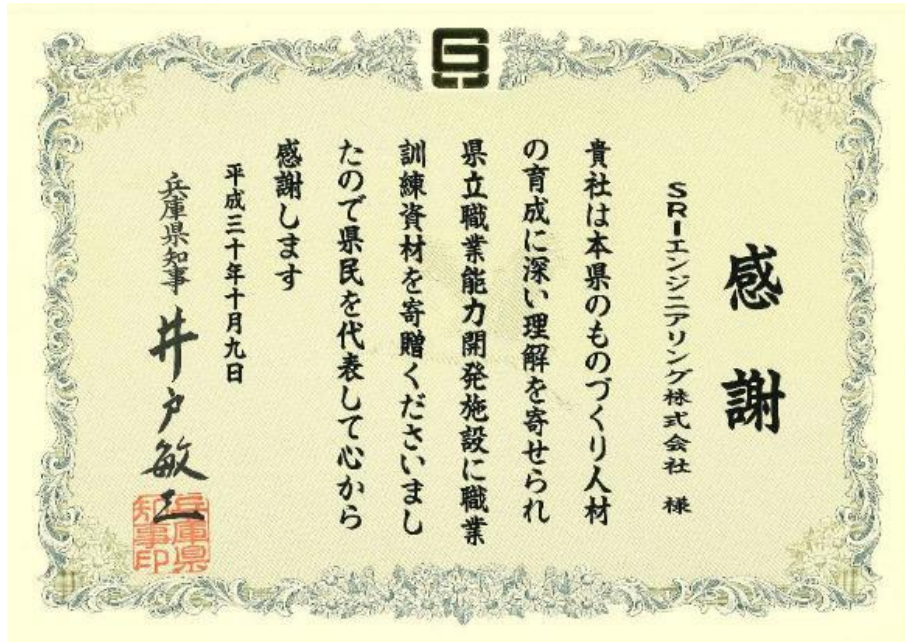 感謝
SRIエンジニアリング株式会社 様
貴社は本県のものづくり人材
の育成に深い理解を寄せられ
県立職業能力開発施設に職業
訓練資材を寄贈くださいまし
たので県民を代表して心から
感謝します
平成三十年十月九日
兵庫県知事 井戸敏三
兵庫県
知事印